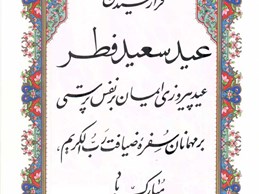 عید سعید فطر
عید پیروزی ایمان بر نفس پرستی
بر مهمانان سفره ضیافت رب الکریم،
مبارک باد